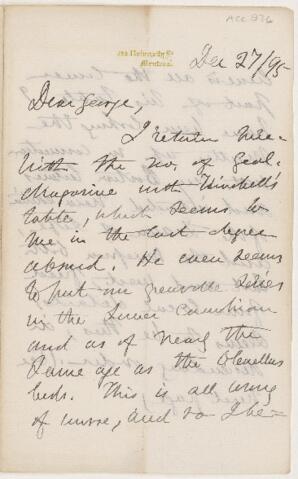 ACC 876
293 University St
Montreal
Dec 27/95
Dear George,
I return here-
with the no. of Geol.
Magazine with Winchell's
table, which seems to
me in the last degree
absurd. He even seems
to put my Grenville series
in the Lower Cambrian
and as of nearly the
same age as the Olenellus
beds. This is all wrong
of course, and so I be-